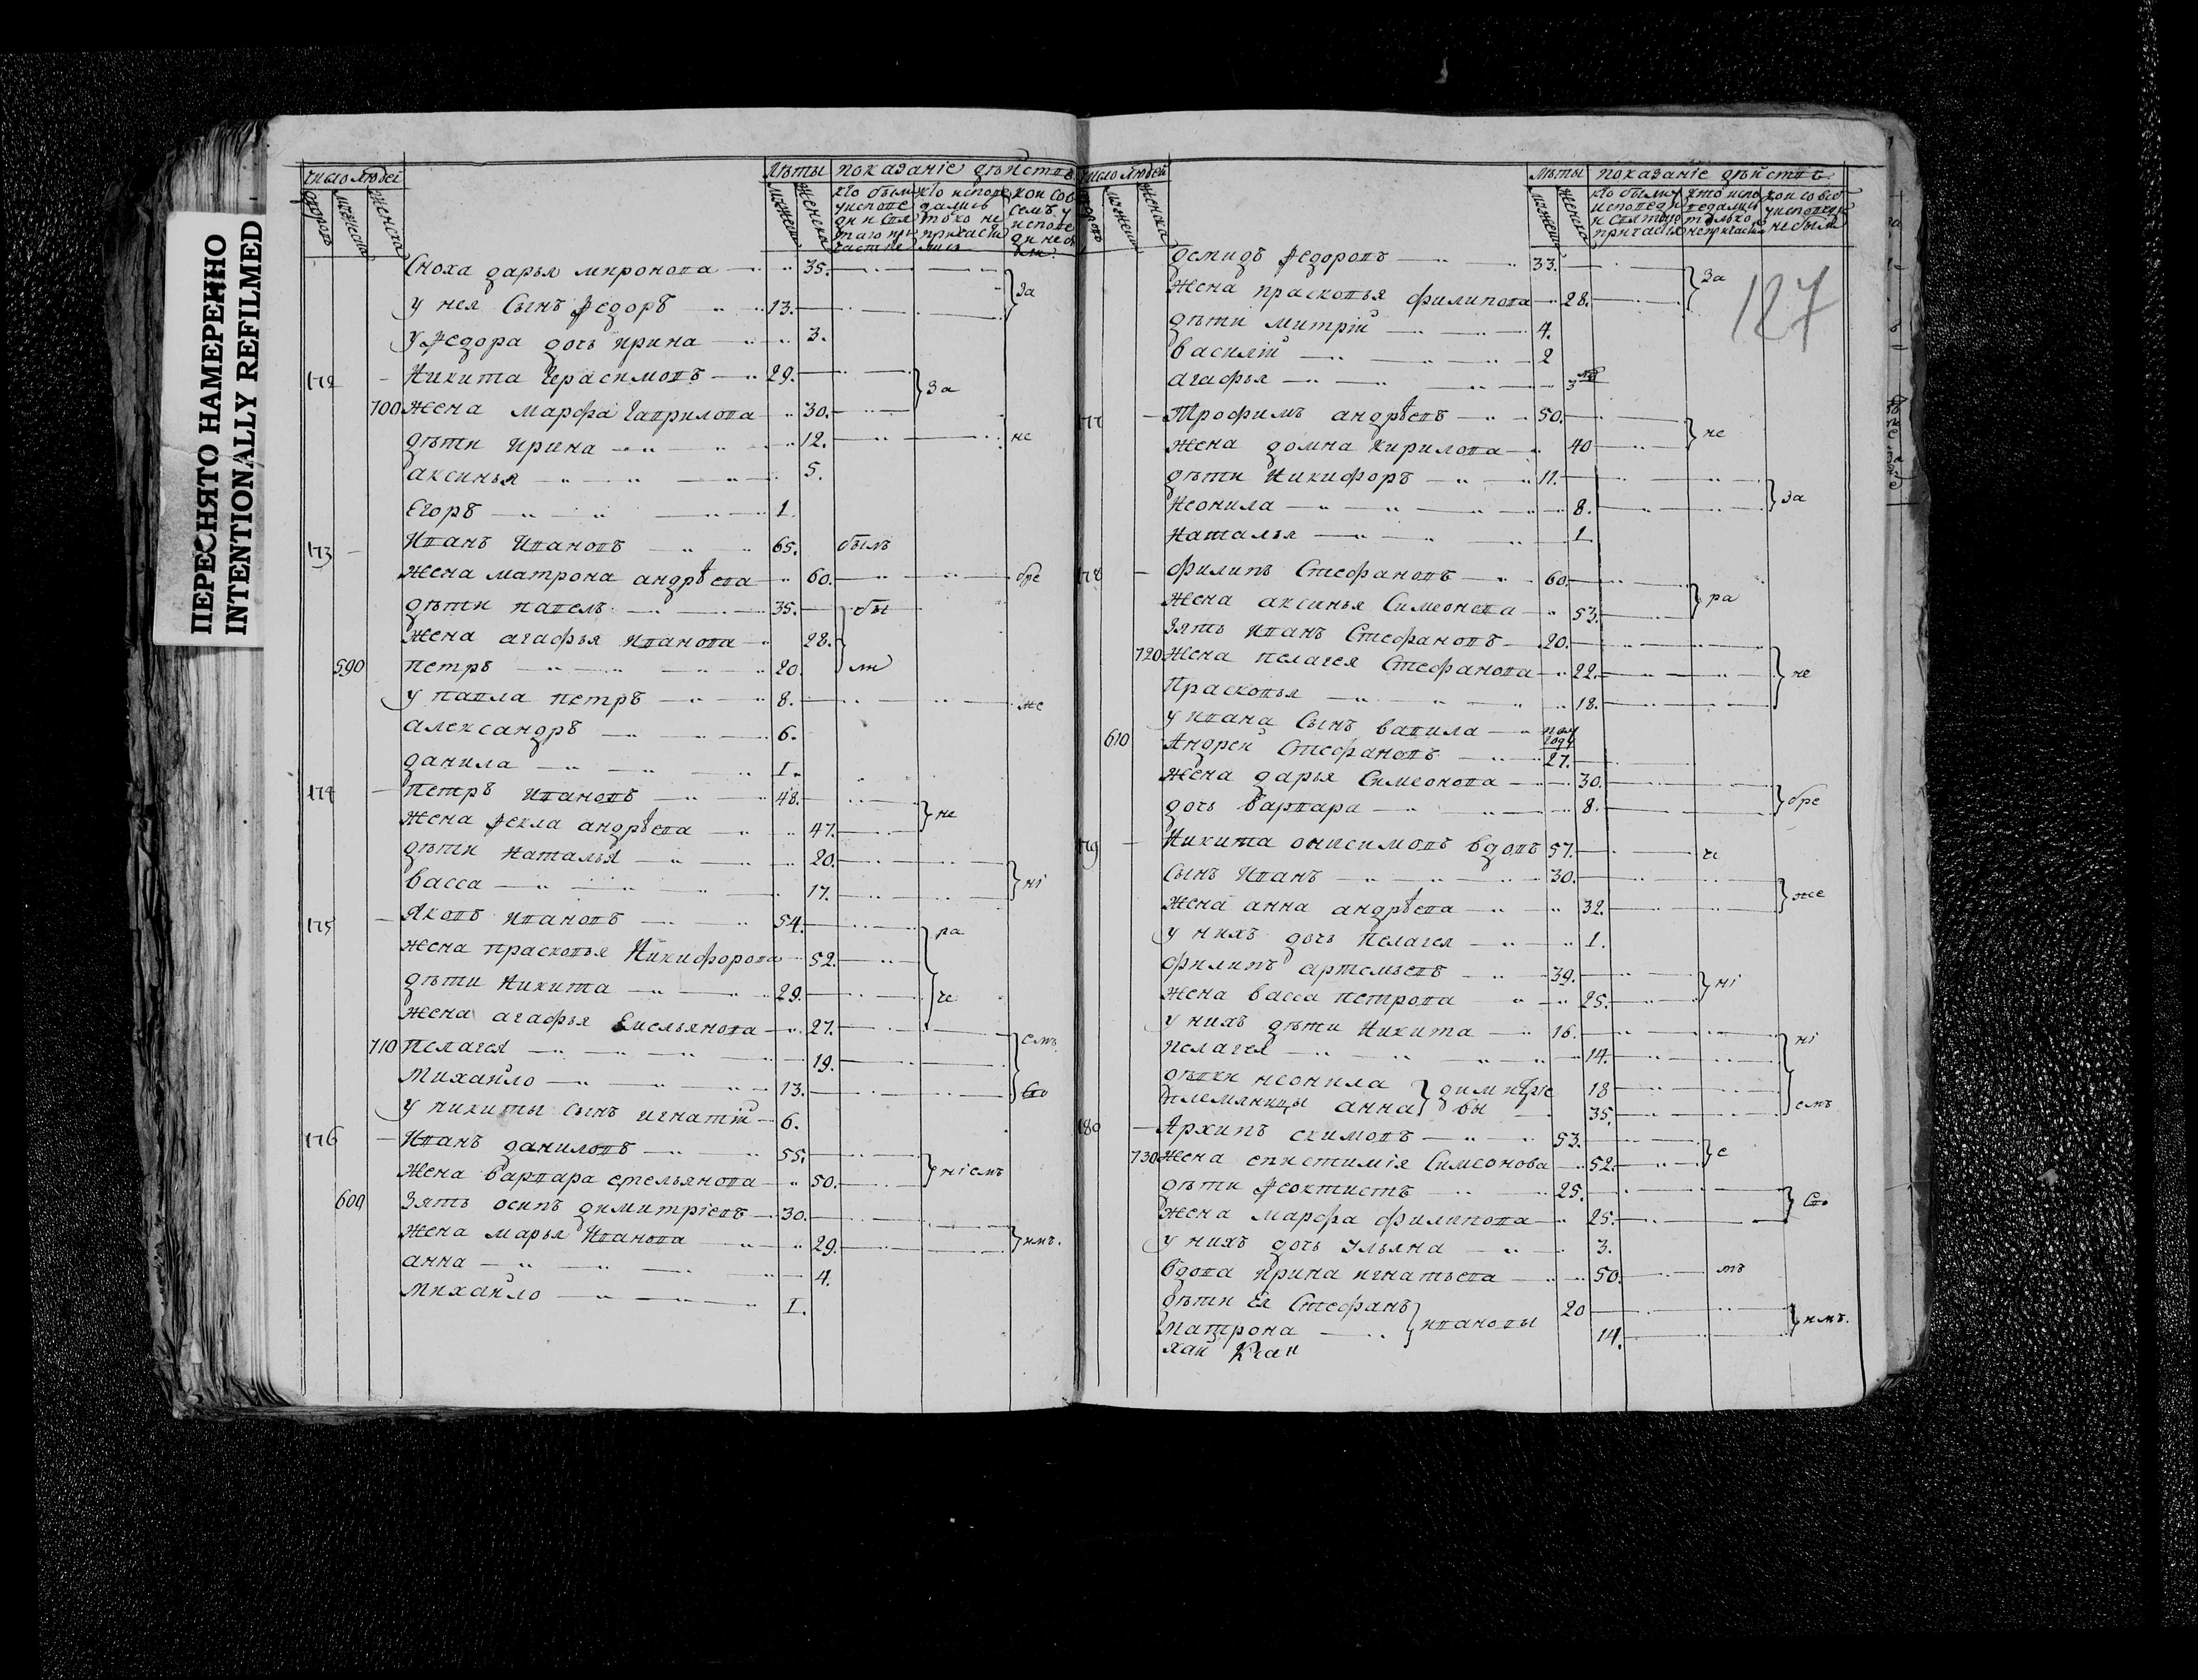 ПЕРЕСНЯТО НАМЕРЕННО
INTENTIONALLY REFILMED
число людей
дворовъ
мужеска
женска
лѣты
мужеска
женска
показаніе дѣйствъ
кто были
у исповѣ
ди и свя
таго при
частіе
кто испове
дались
токо не
причасти
лись
кои сов
семъ у
испове
ди не бы
ли
Сноха дарья миронова 35.
у нея Сынъ Ѳедоръ 13. За
у Ѳедора дочь ирина 3.
172 Никита Герасимовъ 29. За
700 Жена марфа Гаврилова 30.
дѣти ирина 12. не
аксинья 5.
Егоръ 1.
173 Иванъ Ивановъ 65. былъ
Жена матрона андрѣева 60. бре
дѣти павелъ 35. бы
Жена агафья иванова 28.
590 петръ 20. ли
у павла петръ 8. же
александръ 6.
данила 1.
174 петръ ивановъ 48. не
Жена Ѳекла андрѣева 47.
дѣти наталья 20.
васса 17. ні
175 Яковъ ивановъ 54. ра
жена прасковья Никифорова 52.
дѣти Никита 29. че
Жена агафья Емельянова 27.
710 Пелагея 19. емъ
Михайло 13. Сво
у никиты сынъ игнатій 6.
176 Иванъ даниловъ 55. ніемъ
Жена варвара емельянова 50.
600 Зять осипъ димитріевъ 30.
Жена марья Иванова 29. имъ.
анна 4.
Михайло 1.
число людей
дворовъ
мужеска
женска
лѣты
мужеска
женска
показаніе дѣйствъ
кто были у
исповеди
и святаго
причастья
кто испо
ведались
только
не причасти
кои совсе
у исповеди
не были
127
демидъ Ѳедоровъ 33. За
Жена прасковья филипова 28.
дѣти митрій 4.
василій 2
агафья 3
177 Трофимъ андрѣевъ 50. не
жена домна Кирилова 40
дѣти Никифоръ 11.
Неонила 8. За
Наталья 1.
178 филипъ Стефановъ 60. ра
Жена аксинья Симеонова 53.
Зять иванъ Стефановъ 20.
720 Жена пелагея Стефанова 22. не
Прасковья 18.
у ивана Сынъ вавила пол году
610 Андрей Стефановъ 27.
Жена дарья Симеонова 30. бре
дочь варвара 8.
179 Никита онисимовъ вдовъ 57. че
Сынъ Иванъ 30.
Жена анна андрѣева 32. же
у нихъ дочь Пелагея 1.
филипъ артемьевъ 39. ні
Жена васса петрова 25.
у нихъ дѣти Никита 16. ні
пелагея 14.
дѣвки неонила 18
племянницы анна димитріевы 35. емъ
180 Архипъ екимовъ 53. е
730 Жена епистимія Симеонова 52.
дѣти Ѳеоктистъ 25. Сво
Жена марфа филипова 25.
у нихъ дочь ульяна 3.
вдова ирина игнатьева 50. мъ
дѣти Ея Стефанъ 20
матрона ивановы 14. имъ.